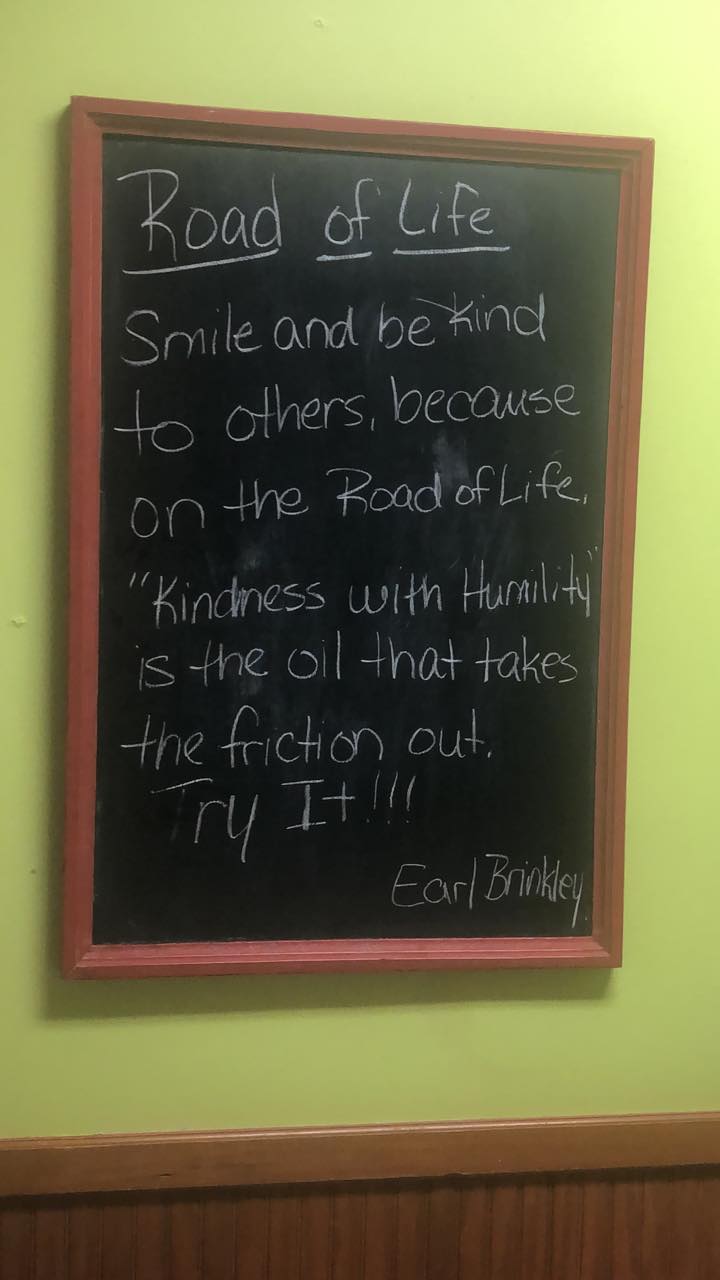 Road of Life
Smile and be kind
to others, because
on the Road of Life,
"Kindness with Humility"
is the oil that takes
the friction out.
Try It!!!
Earl Brinkley